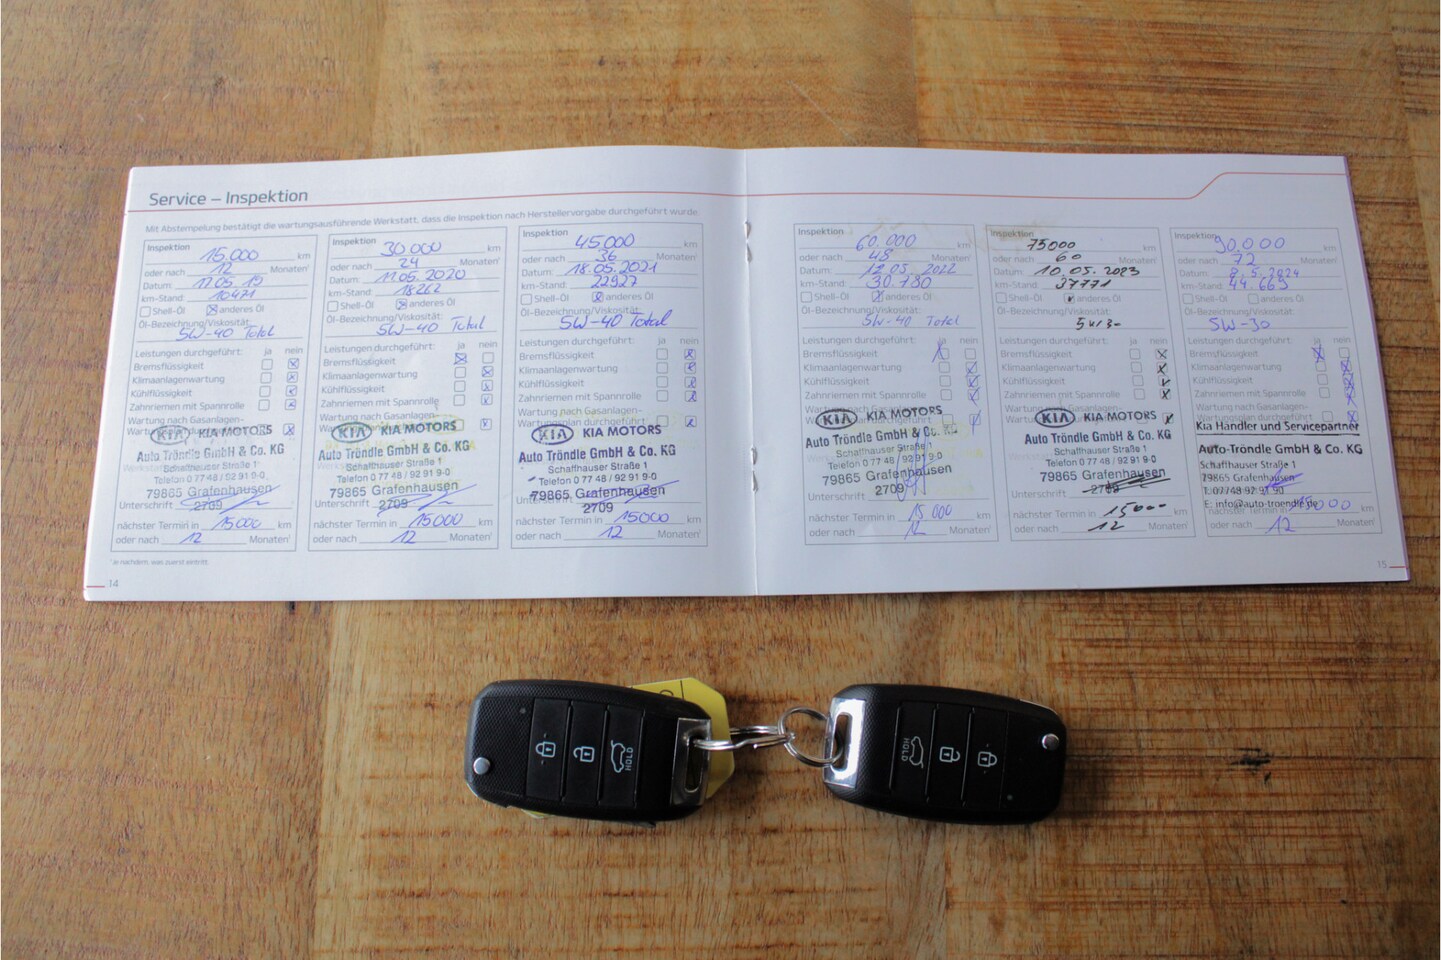 Service – Inspektion
Mit Abstempelung bestätigt die wartungsausführende Werkstatt, dass die Inspektion nach Herstellervorgabe durchgeführt wurde.
Inspektion 15.000 km
oder nach 12 Monaten¹
Datum: 17.05.19
km-Stand: 10471
Shell-Öl anderes Öl
Öl-Bezeichnung/Viskosität:
5W-40 Total
Leistungen durchgeführt: ja nein
Bremsflüssigkeit
Klimaanlagenwartung
Kühlflüssigkeit
Zahnriemen mit Spannrolle
Wartung nach Gasanlagen-
KIA KIA MOTORS
Auto Tröndle GmbH & Co. KG
Schaffhauser Straße 1
Telefon 0 77 48 / 92 91 9-0
79865 Grafenhausen
Unterschrift 2709
nächster Termin in 15000 km
oder nach 12 Monaten¹
¹ je nachdem, was zuerst eintritt
14
Inspektion 30.000 km
oder nach 24 Monaten¹
Datum: 11.05.2020
km-Stand: 18262
Shell-Öl anderes Öl
Öl-Bezeichnung/Viskosität:
5W-40 Total
Leistungen durchgeführt: ja nein
Bremsflüssigkeit
Klimaanlagenwartung
Kühlflüssigkeit
Zahnriemen mit Spannrolle
Wartung nach Gasanlagen-
KIA KIA MOTORS
Auto Tröndle GmbH & Co. KG
Schaffhauser Straße 1
Telefon 0 77 48 / 92 91 9-0
79865 Grafenhausen
Unterschrift 2709
nächster Termin in 15000 km
oder nach 12 Monaten¹
Inspektion 45.000 km
oder nach 36 Monaten¹
Datum: 18.05.2021
km-Stand: 22927
Shell-Öl anderes Öl
Öl-Bezeichnung/Viskosität:
5W-40 Total
Leistungen durchgeführt: ja nein
Bremsflüssigkeit
Klimaanlagenwartung
Kühlflüssigkeit
Zahnriemen mit Spannrolle
Wartung nach Gasanlagen-
Wartungsplan durchgeführt
KIA KIA MOTORS
Auto Tröndle GmbH & Co. KG
Schaffhauser Straße 1
Telefon 0 77 48 / 92 91 9-0
79865 Grafenhausen
Unterschrift 2709
nächster Termin in 15000 km
oder nach 12 Monaten¹
Inspektion 60.000 km
oder nach 48 Monaten¹
Datum: 12.05.2022
km-Stand: 30.780
Shell-Öl anderes Öl
Öl-Bezeichnung/Viskosität:
5W-40 Total
Leistungen durchgeführt: ja nein
Bremsflüssigkeit
Klimaanlagenwartung
Kühlflüssigkeit
Zahnriemen mit Spannrolle
Wartung nach Gasanlagen-
KIA KIA MOTORS
Auto Tröndle GmbH & Co. KG
Schaffhauser Straße 1
Telefon 0 77 48 / 92 91 9-0
79865 Grafenhausen
Unterschrift 2709
nächster Termin in 15 000 km
oder nach 12 Monaten¹
Inspektion 75000 km
oder nach 60 Monaten¹
Datum: 10.05.2023
km-Stand: 37771
Shell-Öl anderes Öl
Öl-Bezeichnung/Viskosität:
5W30
Leistungen durchgeführt: ja nein
Bremsflüssigkeit
Klimaanlagenwartung
Kühlflüssigkeit
Zahnriemen mit Spannrolle
Wartung nach Gasanlagen-
KIA KIA MOTORS
Auto Tröndle GmbH & Co. KG
Schaffhauser Straße 1
Telefon 0 77 48 / 92 91 9-0
79865 Grafenhausen
Unterschrift 2709
nächster Termin in 15000 km
oder nach 12 Monaten¹
Inspektion 90.000 km
oder nach 72 Monaten¹
Datum: 8.5.2024
km-Stand: 44.669
Shell-Öl anderes Öl
Öl-Bezeichnung/Viskosität:
5W-30
Leistungen durchgeführt: ja nein
Bremsflüssigkeit
Klimaanlagenwartung
Kühlflüssigkeit
Zahnriemen mit Spannrolle
Wartung nach Gasanlagen-
Kia Händler und Servicepartner
Auto-Tröndle GmbH & Co. KG
Schaffhauser Straße 1
79865 Grafenhausen
T: 07748-92 91 90
E: info@auto-troendle.de
nächster Termin in 15000 km
oder nach 12 Monaten¹
15
HOLD
HOLD